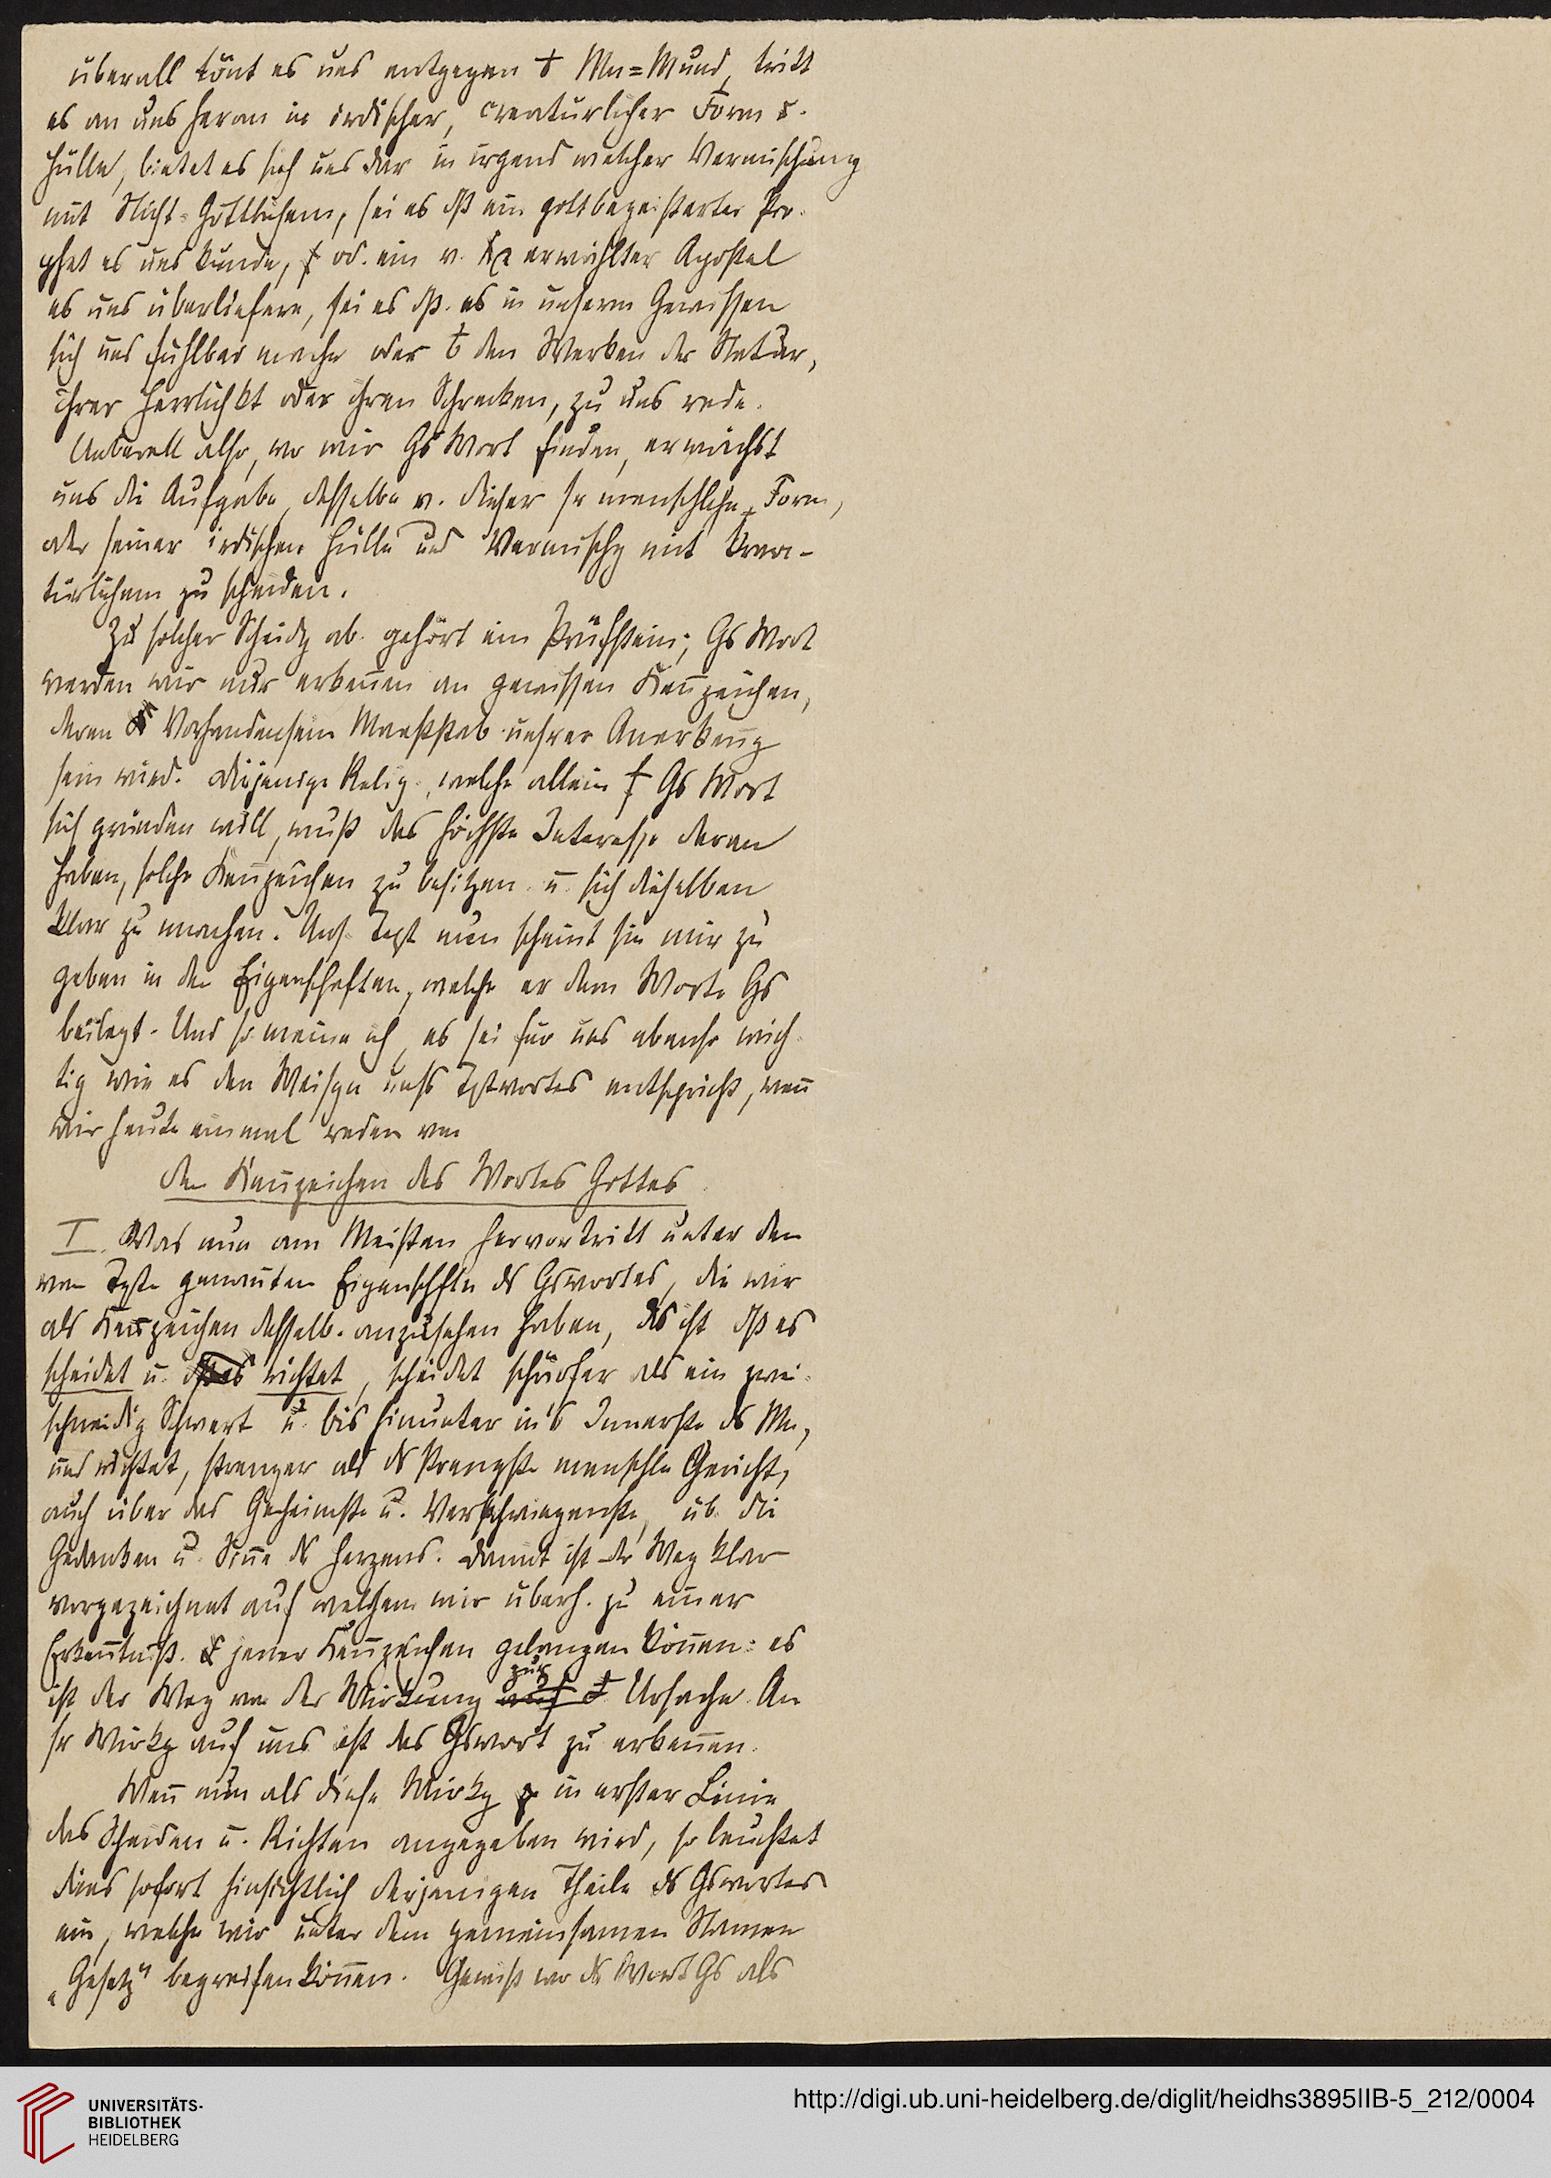 überall tönt es uns entgegen Mn=Mund, tritt
es an uns heran in irdischer, creatürlicher Form u.
Hülle, bietet es sich uns dar in irgend welcher Vermischung
mit Nicht-Göttlichem, sei es dß ein gottbegeisterter Pro-
phet es uns künde, od. ein v. erwählter Apostel
es uns überliefere, sei es dß. es in unserm Gewissen
sich uns fühlbar mache oder den Werken der Natur,
ihrer Herrlichkt oder ihren Schrecken, zu uns rede.
Ueberall also, wo wir Gs Wort finden, erwächst
uns die Aufgabe, dasselbe v. dieser sr menschlichn Form,
oder seiner irdischen Hülle und Vermischg mit Krea-
türlichem zu scheiden.
Zu solcher Scheidg ab. gehört ein Prüfstein; Gs Wort
werden wir nur erkeñen an gewissen Keñzeichen,
deren Vorhandensein Maaßstab unsrer Anerkeñg
sein wird. Diejenige Relig., welche allein Gs Wort
sich gründen will, muß das höchste Interesse daran
haben, solche Keñzeichen zu besitzen u. sich dieselben
klar zu machen. Uns. Text nun scheint sie mir zu
geben in den Eigenschaften, welche er dem Worte Gs
beilegt. Und so meine ich, es sei für uns ebenso wich-
tig wie es den Weisgn unsrs Txtwortes entspricht, weñ
wir heute einmal reden von
den Keñzeichen des Wortes Gottes
I. Was nun am Meisten hervortritt unter den
vom Texte genañten Eigenschftn ds Gswortes, die wir
als Keñzeichen desselb. anzusehen haben, das ist dß es
scheidet u. richtet, scheidet schärfer als ein zwei-
schneidig Schwert u. bis hinunter in's Innerste ds Mn,
und richtet, strenger als ds strengste menschle Gericht,
auch über das Geheimste u. Verschwiegenste, üb. die
Gedanken u. Siñe ds Herzens. Damit ist der Weg klar
vorgezeichnet auf welchem wir überh. zu einer
Erkeñtniß. jener Keñzeichen gelangen köñen: es
ist der Weg von der Wirkung zur Ursache. An
sr Wirkg auf uns ist das Gswort zu erkeñen.
Weñ nun als diese Wirkg in erster Linie
das Scheiden u. Richten angegeben wird, so leuchtet
dies sofort hinsichtlich derjenigen Theile ds Gswortes
ein, welche wir unter dem gemeinsamen Namen
„Gesetz" begreifen köñen. Gewiß wo ds Wort Gs als
UNIVERSITÄTS-
BIBLIOTHEK
HEIDELBERG
http://digi.ub.uni-heidelberg.de/diglit/heidhs3895IIB-5_212/0004